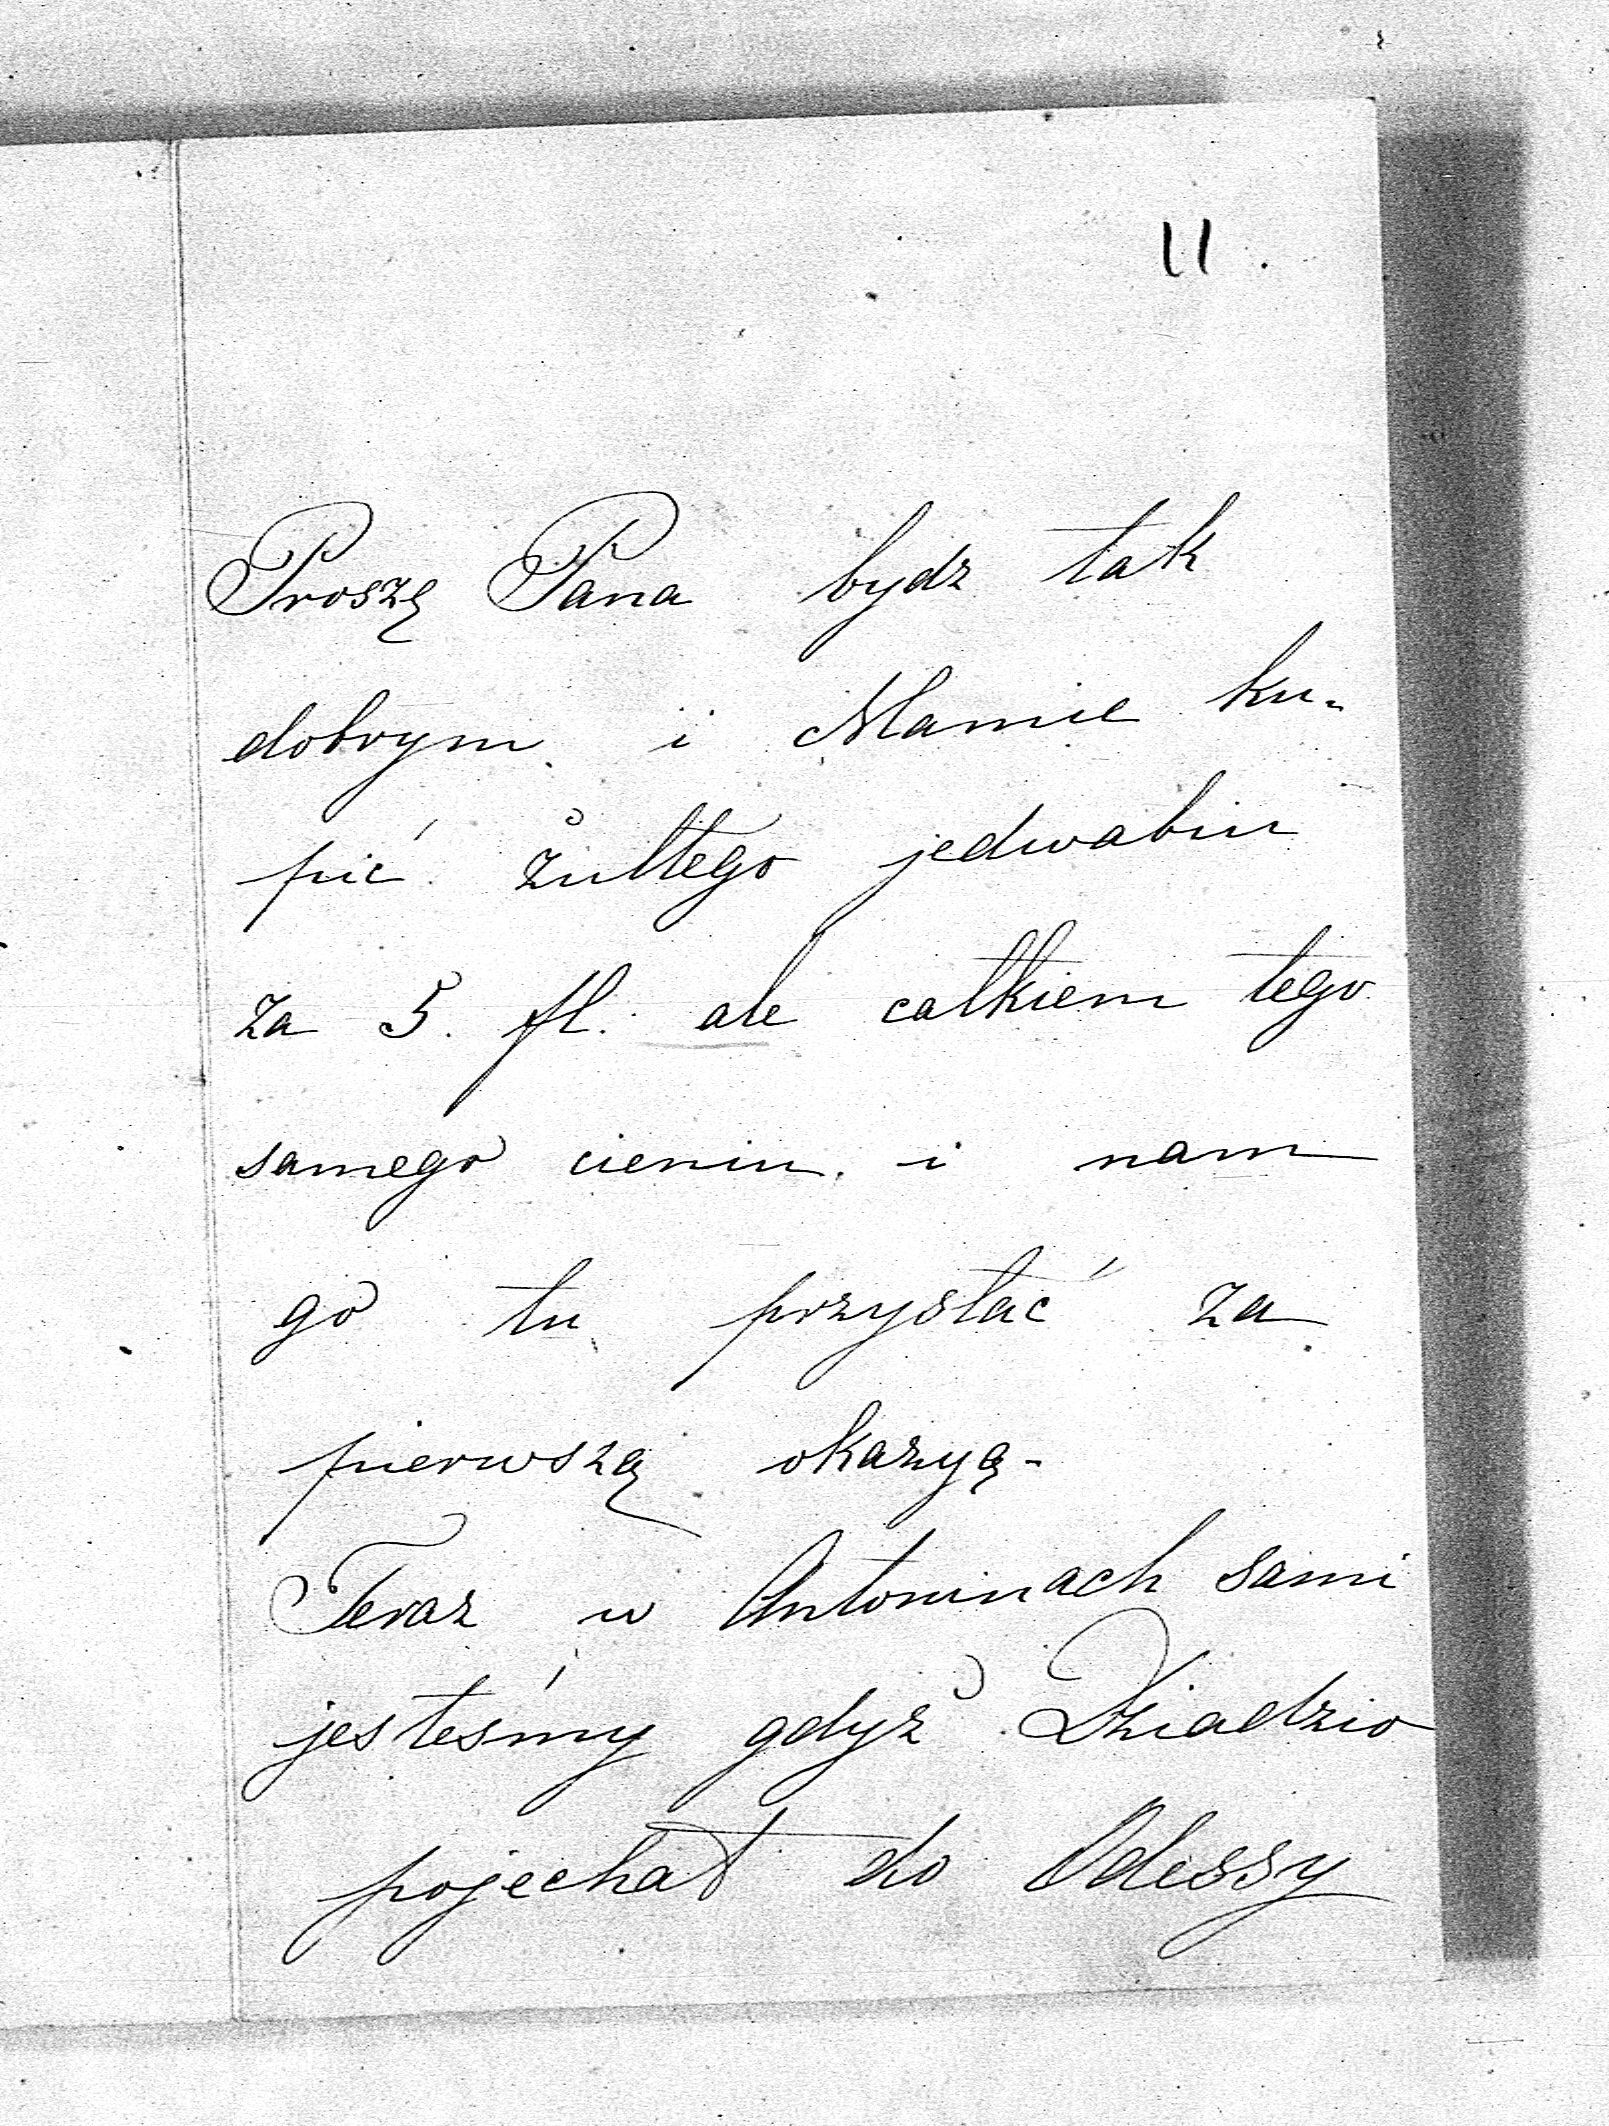 11.
Proszę Pana bydz tak
dobrym i Mamie ku-
pić żułtego jedwabiu
za 5. fl. ale całkiem tego
samego cieniu. i nam
go tu przysłać za
pierwszą okazyą-
Teraz w Antoninach sami
jesteśmy gdyż Dziadzio
pojechał do Odessy